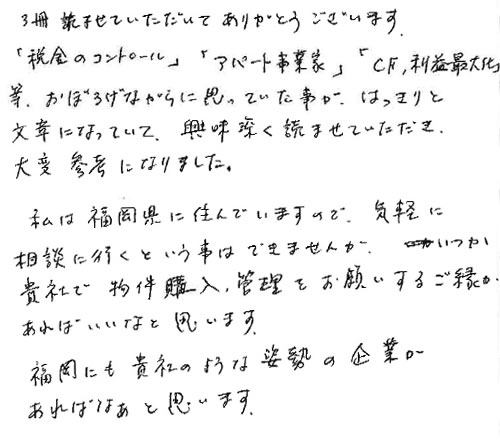 3冊 読ませていただいてありがとうございます.
「税金のコントロール」「アパート事業家」「CF,利益最大化」
等、おぼろげながらに思っていた事が、はっきりと
文章になっていて、興味深く読ませていただき、
大変 参考になりました。
私は福岡県に住んでいますので、気軽に
相談に行くという事はできませんが、いつか
貴社で 物件購入,管理をお願いするご縁が、
あればいいなと思います.
福岡にも貴社のような姿勢の企業が
あればなぁと思います.